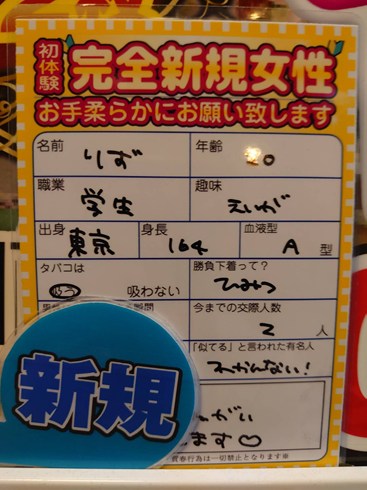 初体験
完全新規女性
お手柔らかにお願い致します
名前 りず 年齢 20
職業 学生 趣味 えいが
出身 東京 身長 164 血液型 A 型
タバコは 吸う 吸わない 勝負下着って? ひみつ
今までの交際人数 2 人
「似てる」と言われた有名人 わかんない!
新規
がい
ます♡
売春行為は一切禁止となります※